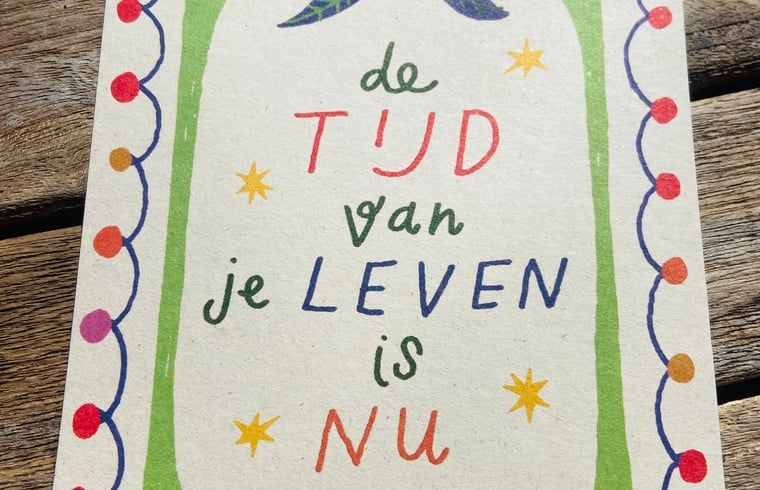 de
TIJD
van
je LEVEN
is
NU